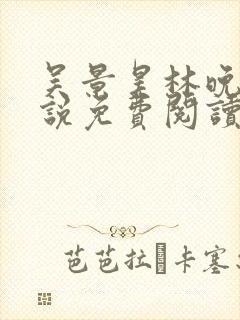 吴景星林晚
說免費閱讀
芭芭拉·卡塞